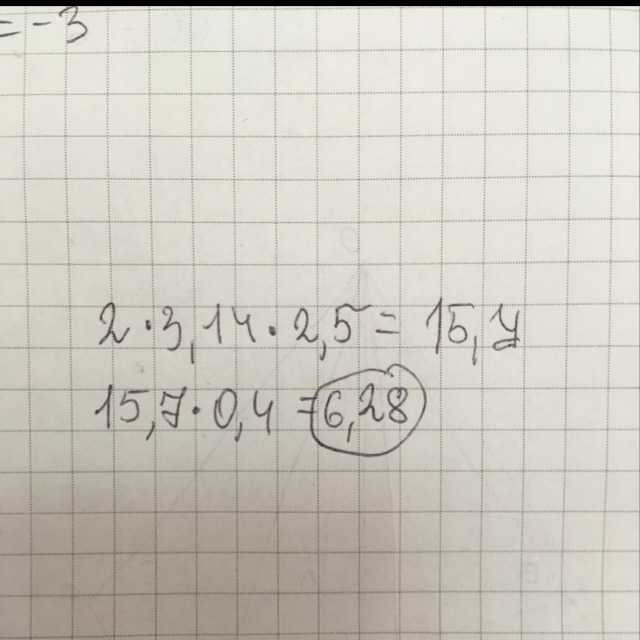 =-3
2·3,14·2,5= 15,7
15,7·0,4=6,28